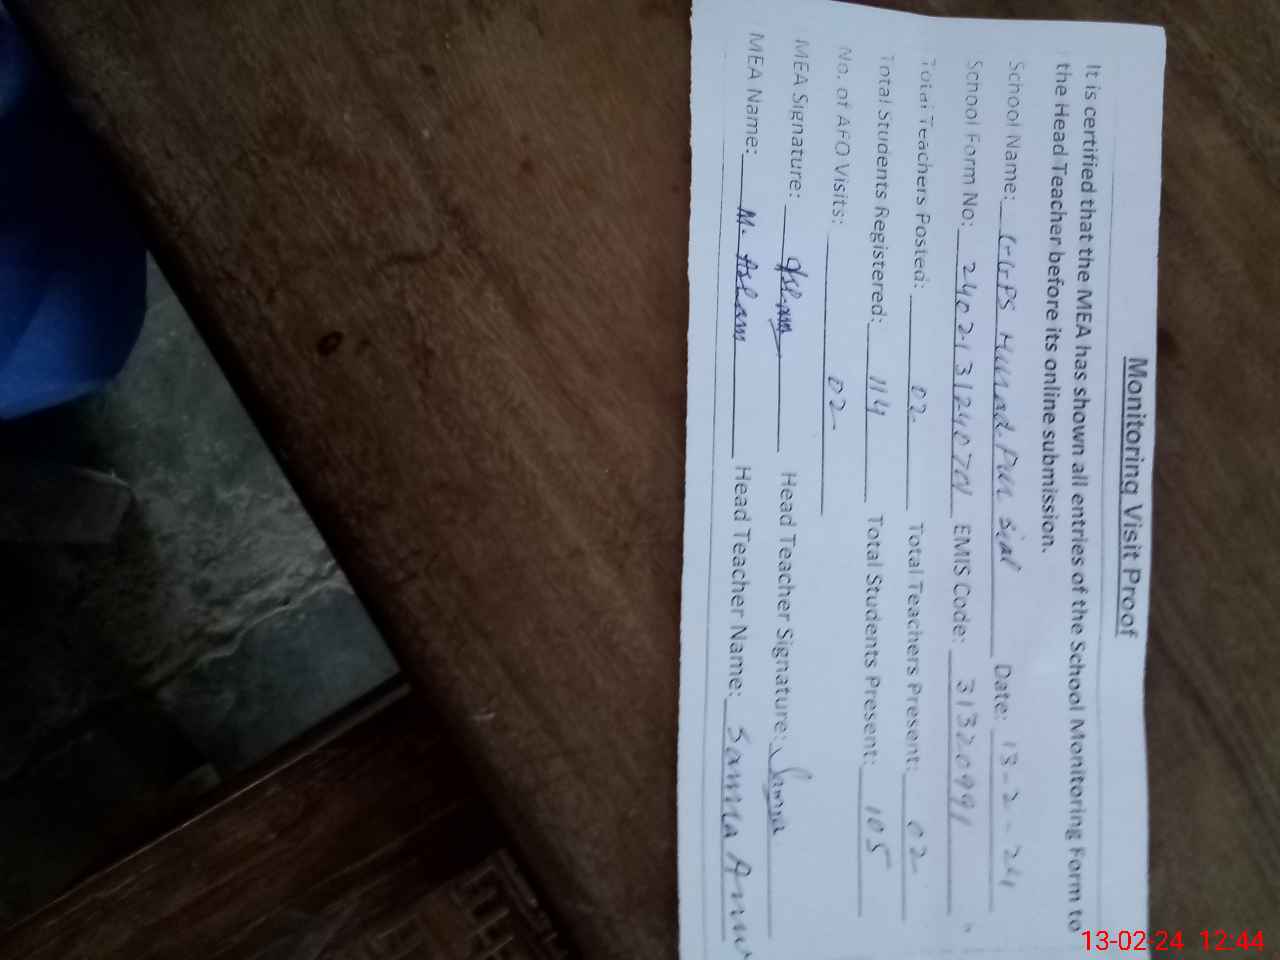 Monitoring Visit Proof
It is certified that the MEA has shown all entries of the School Monitoring Form to
the Head Teacher before its online submission.
School Name: GGPS Murad Pur Sial Date: 13-2-24
School Form No: EMIS Code: 31320991
Total Teachers Posted: 02 Total Teachers Present: 02
Total Students Registered: 114 Total Students Present: 105
No. of AFO Visits: 02
MEA Signature: Aslam Head Teacher Signature: Samra
MEA Name: M. Aslam Head Teacher Name: Samra
13-02-24 12:44